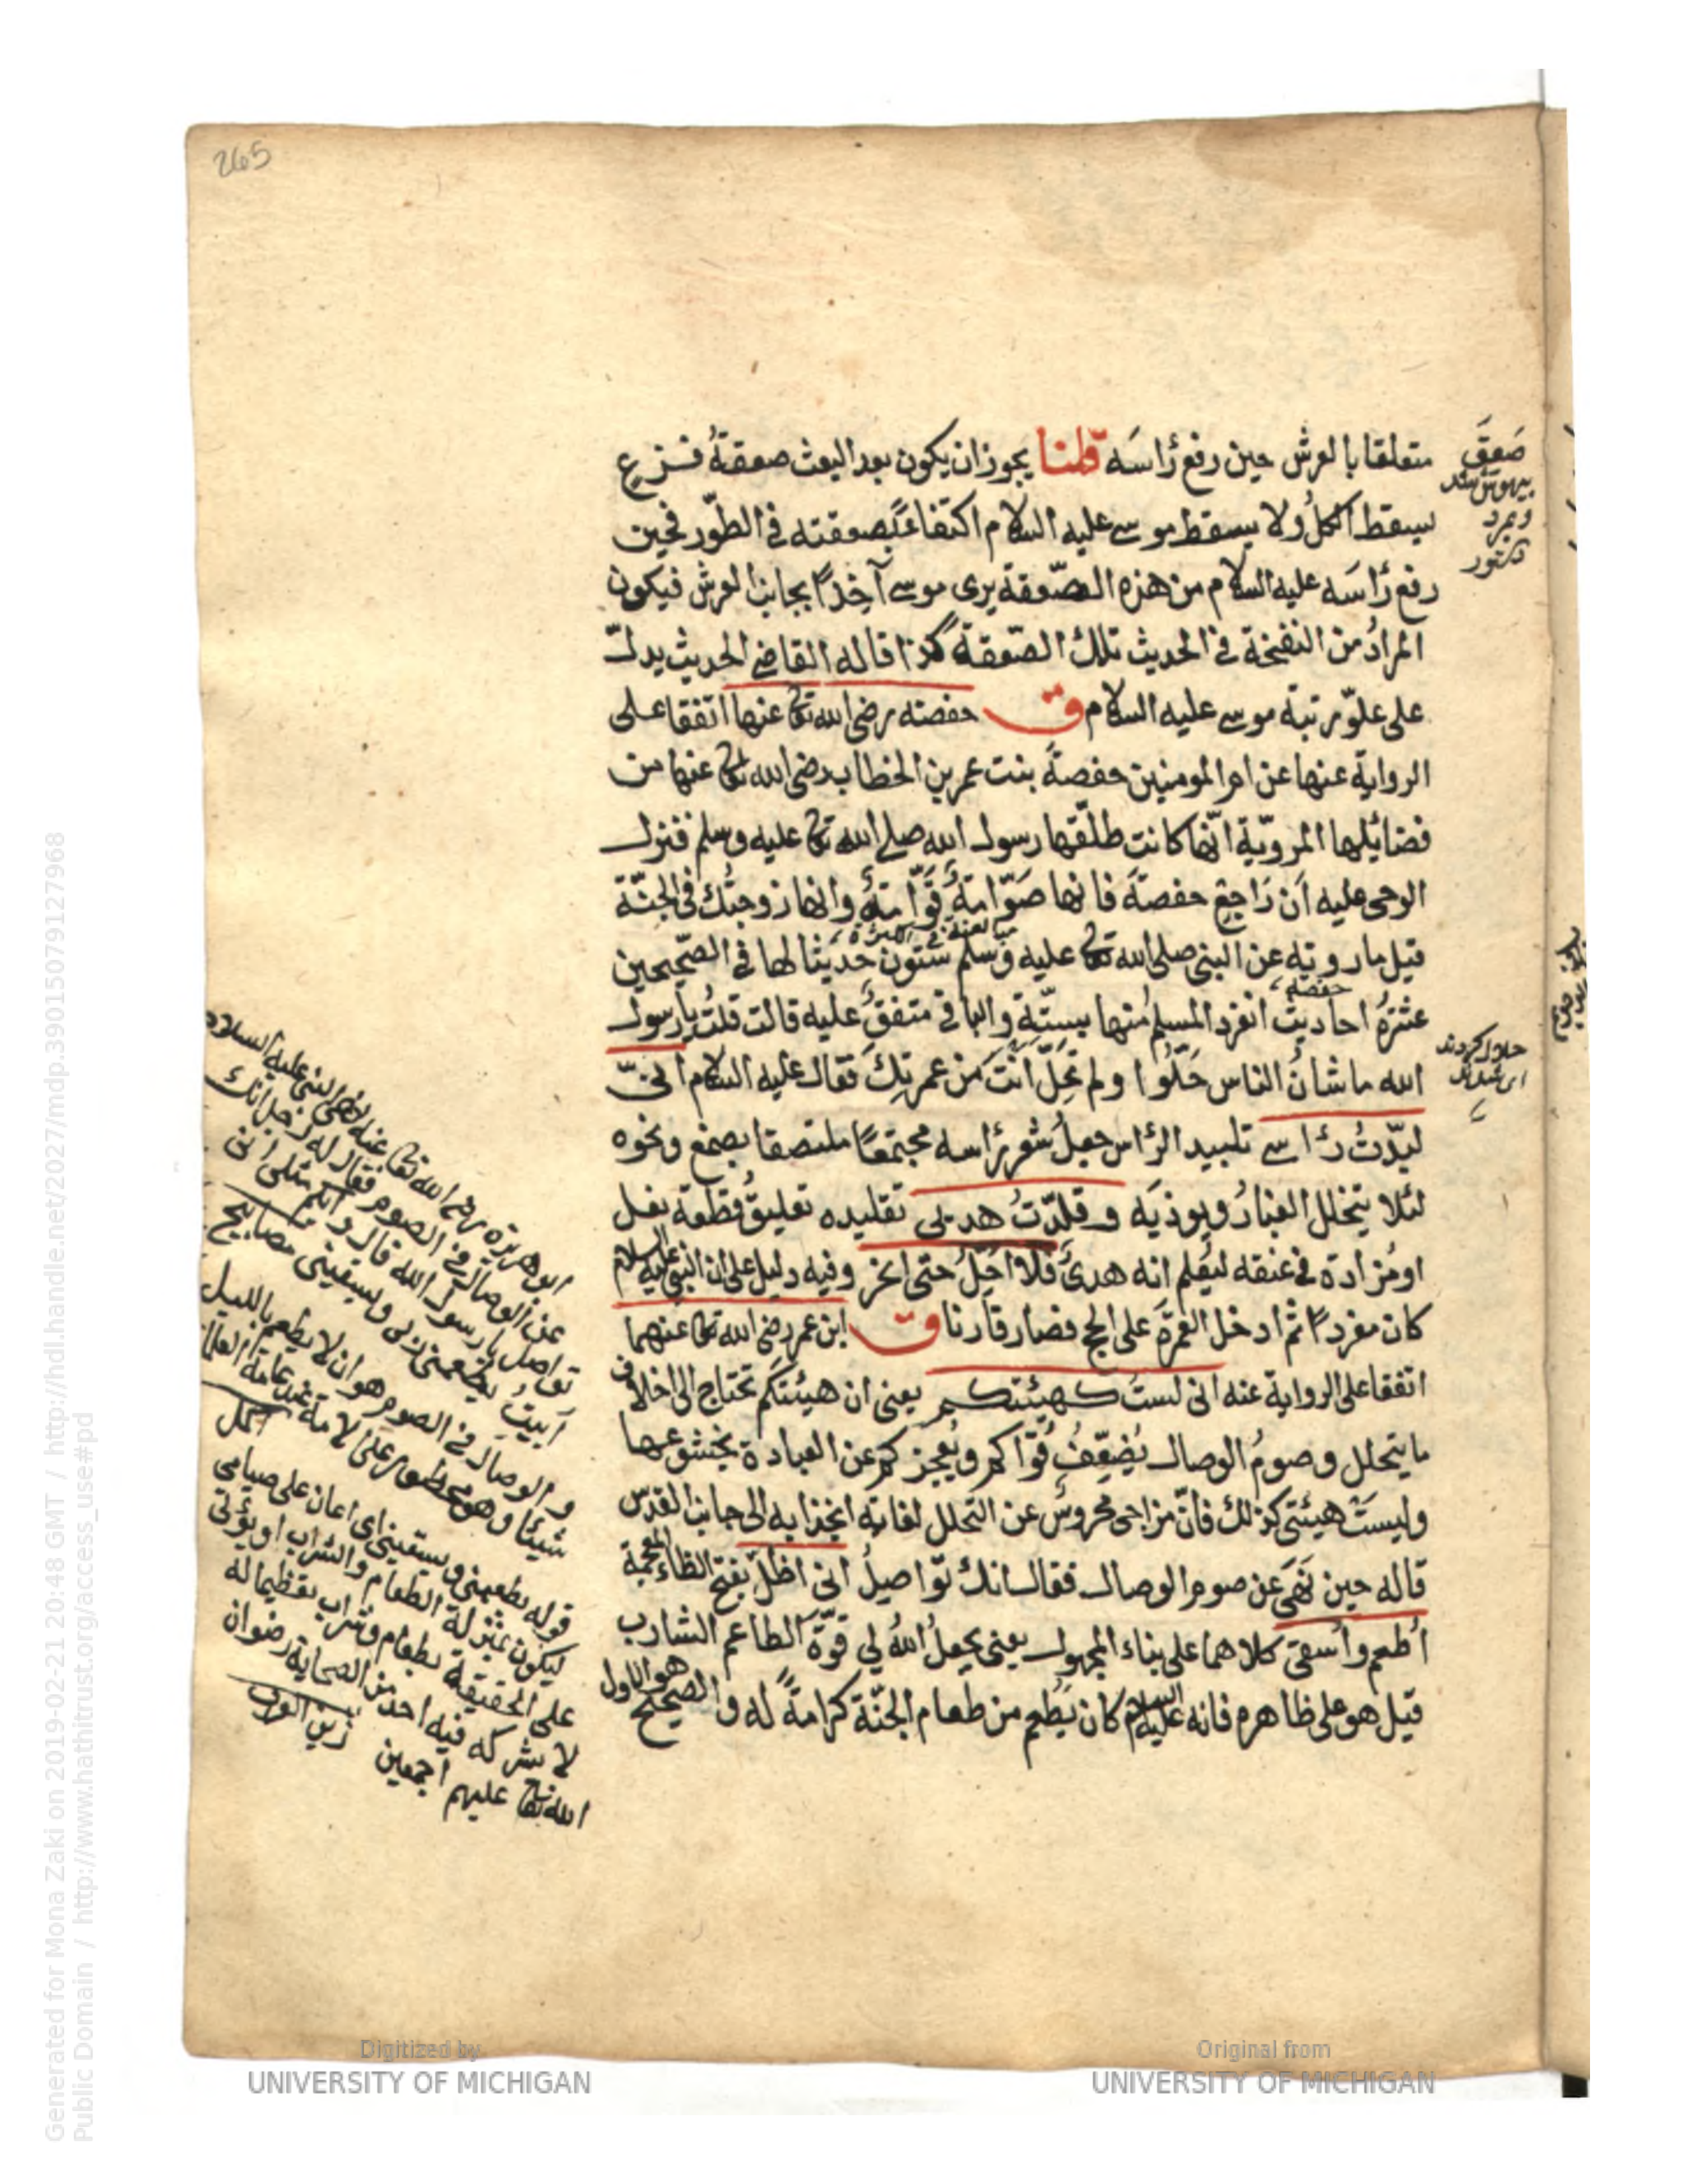 265
متعلقا بالعرش حين رفع رأسَه قلنا يجوز ان يكون بعد البعث صعقةُ فزع
يسقط الكلُ ولا يسقط موسى عليه السلام اكتفاءً بصعقته في الطّور فحين
رفع رأسَه عليه السلام من هذه الصّعقة يرى موسى آخِذًا بجانب العرش فيكون
المرادُ من النفخة في الحديث تلك الصّعقة كذا قاله القاضي الحديث يدل
على علوّ مرتبة موسى عليه السلام ق حفصة رضي الله تعالى عنها اتفقا على
الرواية عنها عن ام المومنين حفصةَ بنت عمر بن الخطاب رضي الله تعالى عنها من
فضائلها المرويّة انّها كانت طلّقها رسول الله صلى الله تعالى عليه وسلم فنزل
الوحى عليه اَن رَاجِع حفصةَ فانها صَوّامةٌ قَوّامةٌ وانها زوجتُك في الجنّة
قيل ما روته عن النبي صلى الله تعالى عليه وسلم ستون حديثا لها في الصّحيحين
عشرةُ احاديث انفرد المسلمُ منها بستّةٍ والباقي متفقٌ عليه قالت قلتُ يا رسول
الله ما شانُ الناس حَلّوا ولم تَحِلّ انتَ من عمرتِكَ فقال عليه السلام انّى
لبّدتُ رأسي تلبيد الرأس جعلُ شعر رأسه مجتمعًا ملتصقا بصمغ ونحوه
لئلا يتخلل الغبارُ ويوذيَه وقلدّتُ هديي تقليده تعليقُ قطعة نعل
او مُزادة في عنقه ليُعلم انه هديٌ فلا اَحِلُ حتى انحر وفيه دليل على ان النبي عليه السلام
كان مفردًا ثم ادخل العمرَة على الحج فصار قارنا ق ابن عمر رضي الله تعالى عنهما
اتفقا على الرواية عنه انى لستُ كهيئتكم يعنى ان هيئتكم تحتاج الى اخلاف
ما يتحلل وصومُ الوصال يُضعِّفُ قُوَّاكم ويُعجِزكم عن العبادة بخشوعها
وليسَتْ هيئتى كذلك فانّ مزاجى محروسٌ عن التحلل لغاية انجذابه الى جانب القدس
قاله حين نَهَى عن صوم الوصال فقال انك تُواصِلُ انى اظلّ بفتح الظاء المعجمة
اُطعم واُسقى كلاهما على بناء المجهول يعنى يجعلُ اللهُ لى قوةَ الطاعم الشارب
قيل هو على ظاهره فانه عليه السلام كان يُطعم من طعام الجنّة كرامةً له والصحيح هو الاول
صَعِقَ
بيهوش شد
وبمرد
حفصة
ابو هريرة رضي الله تعالى عنه نهى النبي عليه السلام
عن الوصال في الصوم فقال له رجل انك
تواصل يا رسول الله قال وايكم مثلي انى
اَبيتُ يطعمنى ربى ويسقينى مصابيح
والوصال في الصوم هو ان لا يطعم بالليل
قوله يطعمنى ويسقينى اى اعان على صيامى
ليكون بمنزلة الطعام والشراب او يؤتى
على الحقيقة بطعام وشراب تعظيما له
لا يشركه فيه احد من الصحابة رضوان
الله تعالى عليهم اجمعين زين العرب
Generated for Mona Zaki on 2019-02-21 20:48 GMT / http://hdl.handle.net/2027/mdp.39015079127968
Public Domain / http://www.hathitrust.org/access_use#pd
Digitized by
UNIVERSITY OF MICHIGAN
Original from
UNIVERSITY OF MICHIGAN